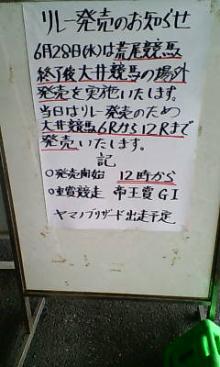 リレー発売のお知らせ
6月28日(水)は荒尾競馬
終了後大井競馬の場外
発売を実施いたします。
当日はリレー発売のため
大井競馬6Rから12Rまで
発売いたします。
記
○発売開始 12時から
○重賞競走 帝王賞GI
ヤマノブリザード出走予定